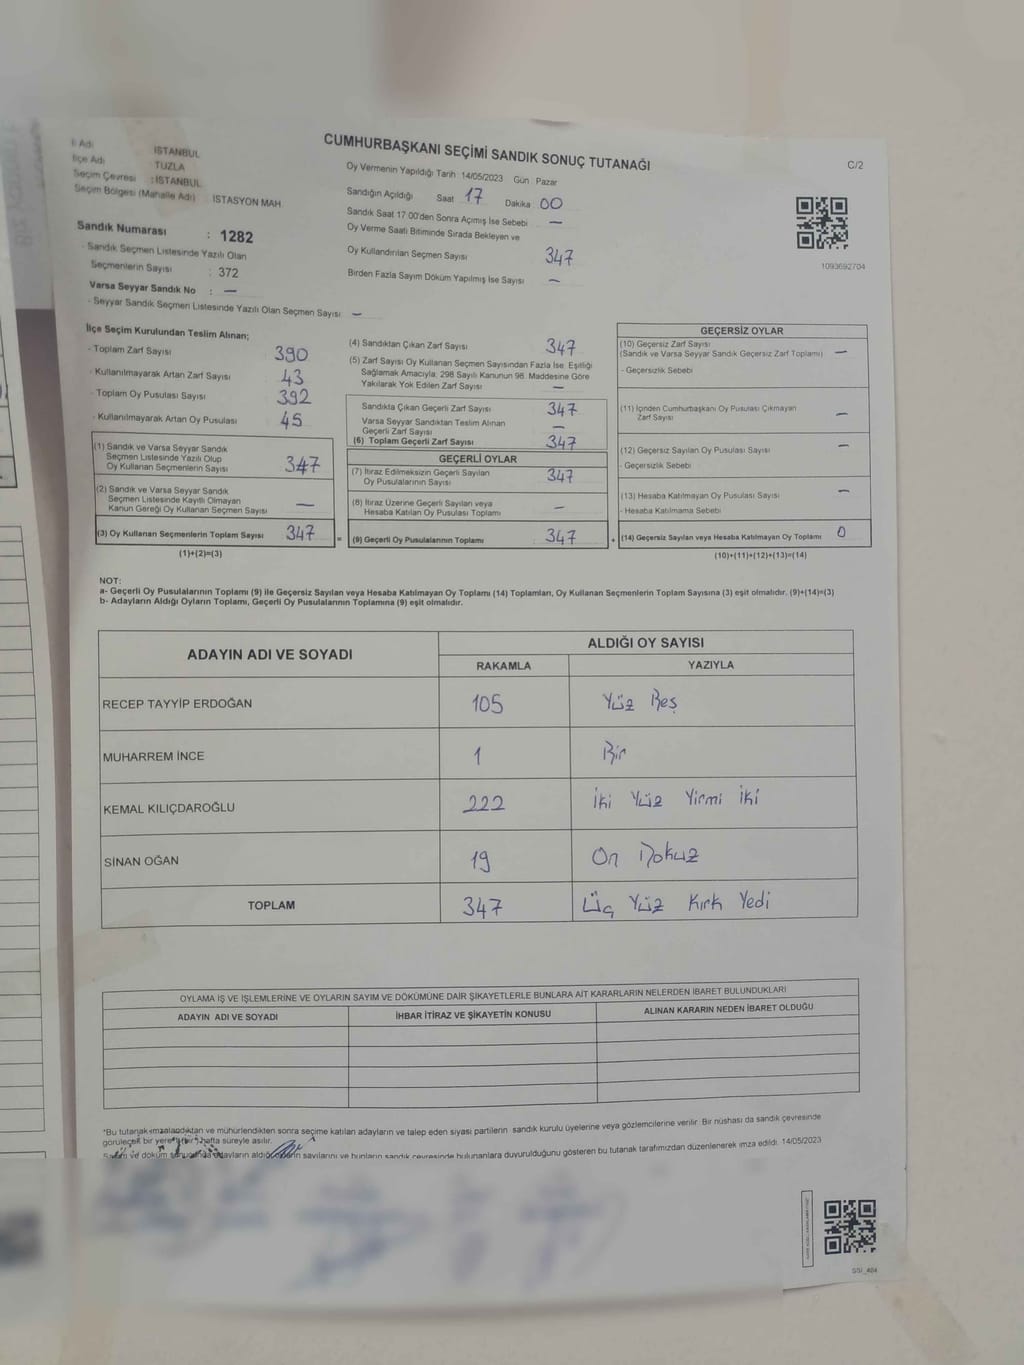 İl Adı İSTANBUL
İlçe Adı TUZLA
Seçim Çevresi : İSTANBUL
Seçim Bölgesi (Mahalle Adı) İSTASYON MAH.
CUMHURBAŞKANI SEÇİMİ SANDIK SONUÇ TUTANAĞI
C/2
Oy Vermenin Yapıldığı Tarih :14/05/2023 Gün : Pazar
Sandığın Açıldığı Saat 17 Dakika 00
Sandık Saat 17 00'den Sonra Açımış İse Sebebi —
Oy Verme Saati Bitiminde Sırada Bekleyen ve
Oy Kullandırılan Seçmen Sayısı 347
Birden Fazla Sayım Döküm Yapılmış İse Sayısı —
1093692704
Sandık Numarası : 1282
- Sandık Seçmen Listesinde Yazılı Olan
Seçmenlerin Sayısı : 372
Varsa Seyyar Sandık No : —
- Seyyar Sandık Seçmen Listesinde Yazılı Olan Seçmen Sayısı —
İlçe Seçim Kurulundan Teslim Alınan;
- Toplam Zarf Sayısı 390
- Kullanılmayarak Artan Zarf Sayısı 43
- Toplam Oy Pusulası Sayısı 392
- Kullanılmayarak Artan Oy Pusulası 45
(1) Sandık ve Varsa Seyyar Sandık
Seçmen Listesinde Yazılı Olup
Oy Kullanan Seçmenlerin Sayısı 347
(2) Sandık ve Varsa Seyyar Sandık
Seçmen Listesinde Kayıtlı Olmayan
Kanun Gereği Oy Kullanan Seçmen Sayısı —
(3) Oy Kullanan Seçmenlerin Toplam Sayısı 347 =
(1)+(2)=(3)
(4) Sandıktan Çıkan Zarf Sayısı 347
(5) Zarf Sayısı Oy Kullanan Seçmen Sayısından Fazla İse, Eşitliği
Sağlamak Amacıyla, 298 Sayılı Kanunun 98. Maddesine Göre
Yakılarak Yok Edilen Zarf Sayısı —
Sandıkla Çıkan Geçerli Zarf Sayısı 347
Varsa Seyyar Sandıktan Teslim Alınan
Geçerli Zarf Sayısı —
(6) Toplam Geçerli Zarf Sayısı 347
GEÇERLİ OYLAR
(7) İtiraz Edilmeksizin Geçerli Sayılan
Oy Pusulalarının Sayısı 347
(8) İtiraz Üzerine Geçerli Sayılan veya
Hesaba Katılan Oy Pusulası Toplamı —
(9) Geçerli Oy Pusulalarının Toplamı 347 +
GEÇERSİZ OYLAR
(10) Geçersiz Zarf Sayısı
(Sandık ve Varsa Seyyar Sandık Geçersiz Zarf Toplamı) —
- Geçersizlik Sebebi
(11) İçinden Cumhurbaşkanı Oy Pusulası Çıkmayan
Zarf Sayısı —
(12) Geçersiz Sayılan Oy Pusulası Sayısı —
- Geçersizlik Sebebi
(13) Hesaba Katılmayan Oy Pusulası Sayısı —
- Hesaba Katılmama Sebebi
(14) Geçersiz Sayılan veya Hesaba Katılmayan Oy Toplamı 0
(10)+(11)+(12)+(13)=(14)
NOT:
a- Geçerli Oy Pusulalarının Toplamı (9) ile Geçersiz Sayılan veya Hesaba Katılmayan Oy Toplamı (14) Toplamları, Oy Kullanan Seçmenlerin Toplam Sayısına (3) eşit olmalıdır. (9)+(14)=(3)
b- Adayların Aldığı Oyların Toplamı, Geçerli Oy Pusulalarının Toplamına (9) eşit olmalıdır.
ADAYIN ADI VE SOYADI
ALDIĞI OY SAYISI
RAKAMLA YAZIYLA
RECEP TAYYİP ERDOĞAN 105 Yüz Beş
MUHARREM İNCE 1 Bir
KEMAL KILIÇDAROĞLU 222 İki Yüz Yirmi İki
SİNAN OĞAN 19 On Dokuz
TOPLAM 347 Üç Yüz Kırk Yedi
OYLAMA İŞ VE İŞLEMLERİNE VE OYLARIN SAYIM VE DÖKÜMÜNE DAİR ŞİKAYETLERLE BUNLARA AİT KARARLARIN NELERDEN İBARET BULUNDUKLARI
ADAYIN ADI VE SOYADI İHBAR İTİRAZ VE ŞİKAYETİN KONUSU ALINAN KARARIN NEDEN İBARET OLDUĞU
*Bu tutanak imzalandıktan ve mühürlendikten sonra seçime katılan adayların ve talep eden siyasi partilerin sandık kurulu üyelerine veya gözlemcilerine verilir. Bir nüshası da sandık çevresinde
görülecek bir yere bir hafta süreyle asılır.
Sayım ve döküm sonucunda adayların aldığı oyların sayılarını ve bunların sandık çevresinde bulunanlara duyurulduğunu gösteren bu tutanak tarafımızdan düzenlenerek imza edildi. 14/05/2023